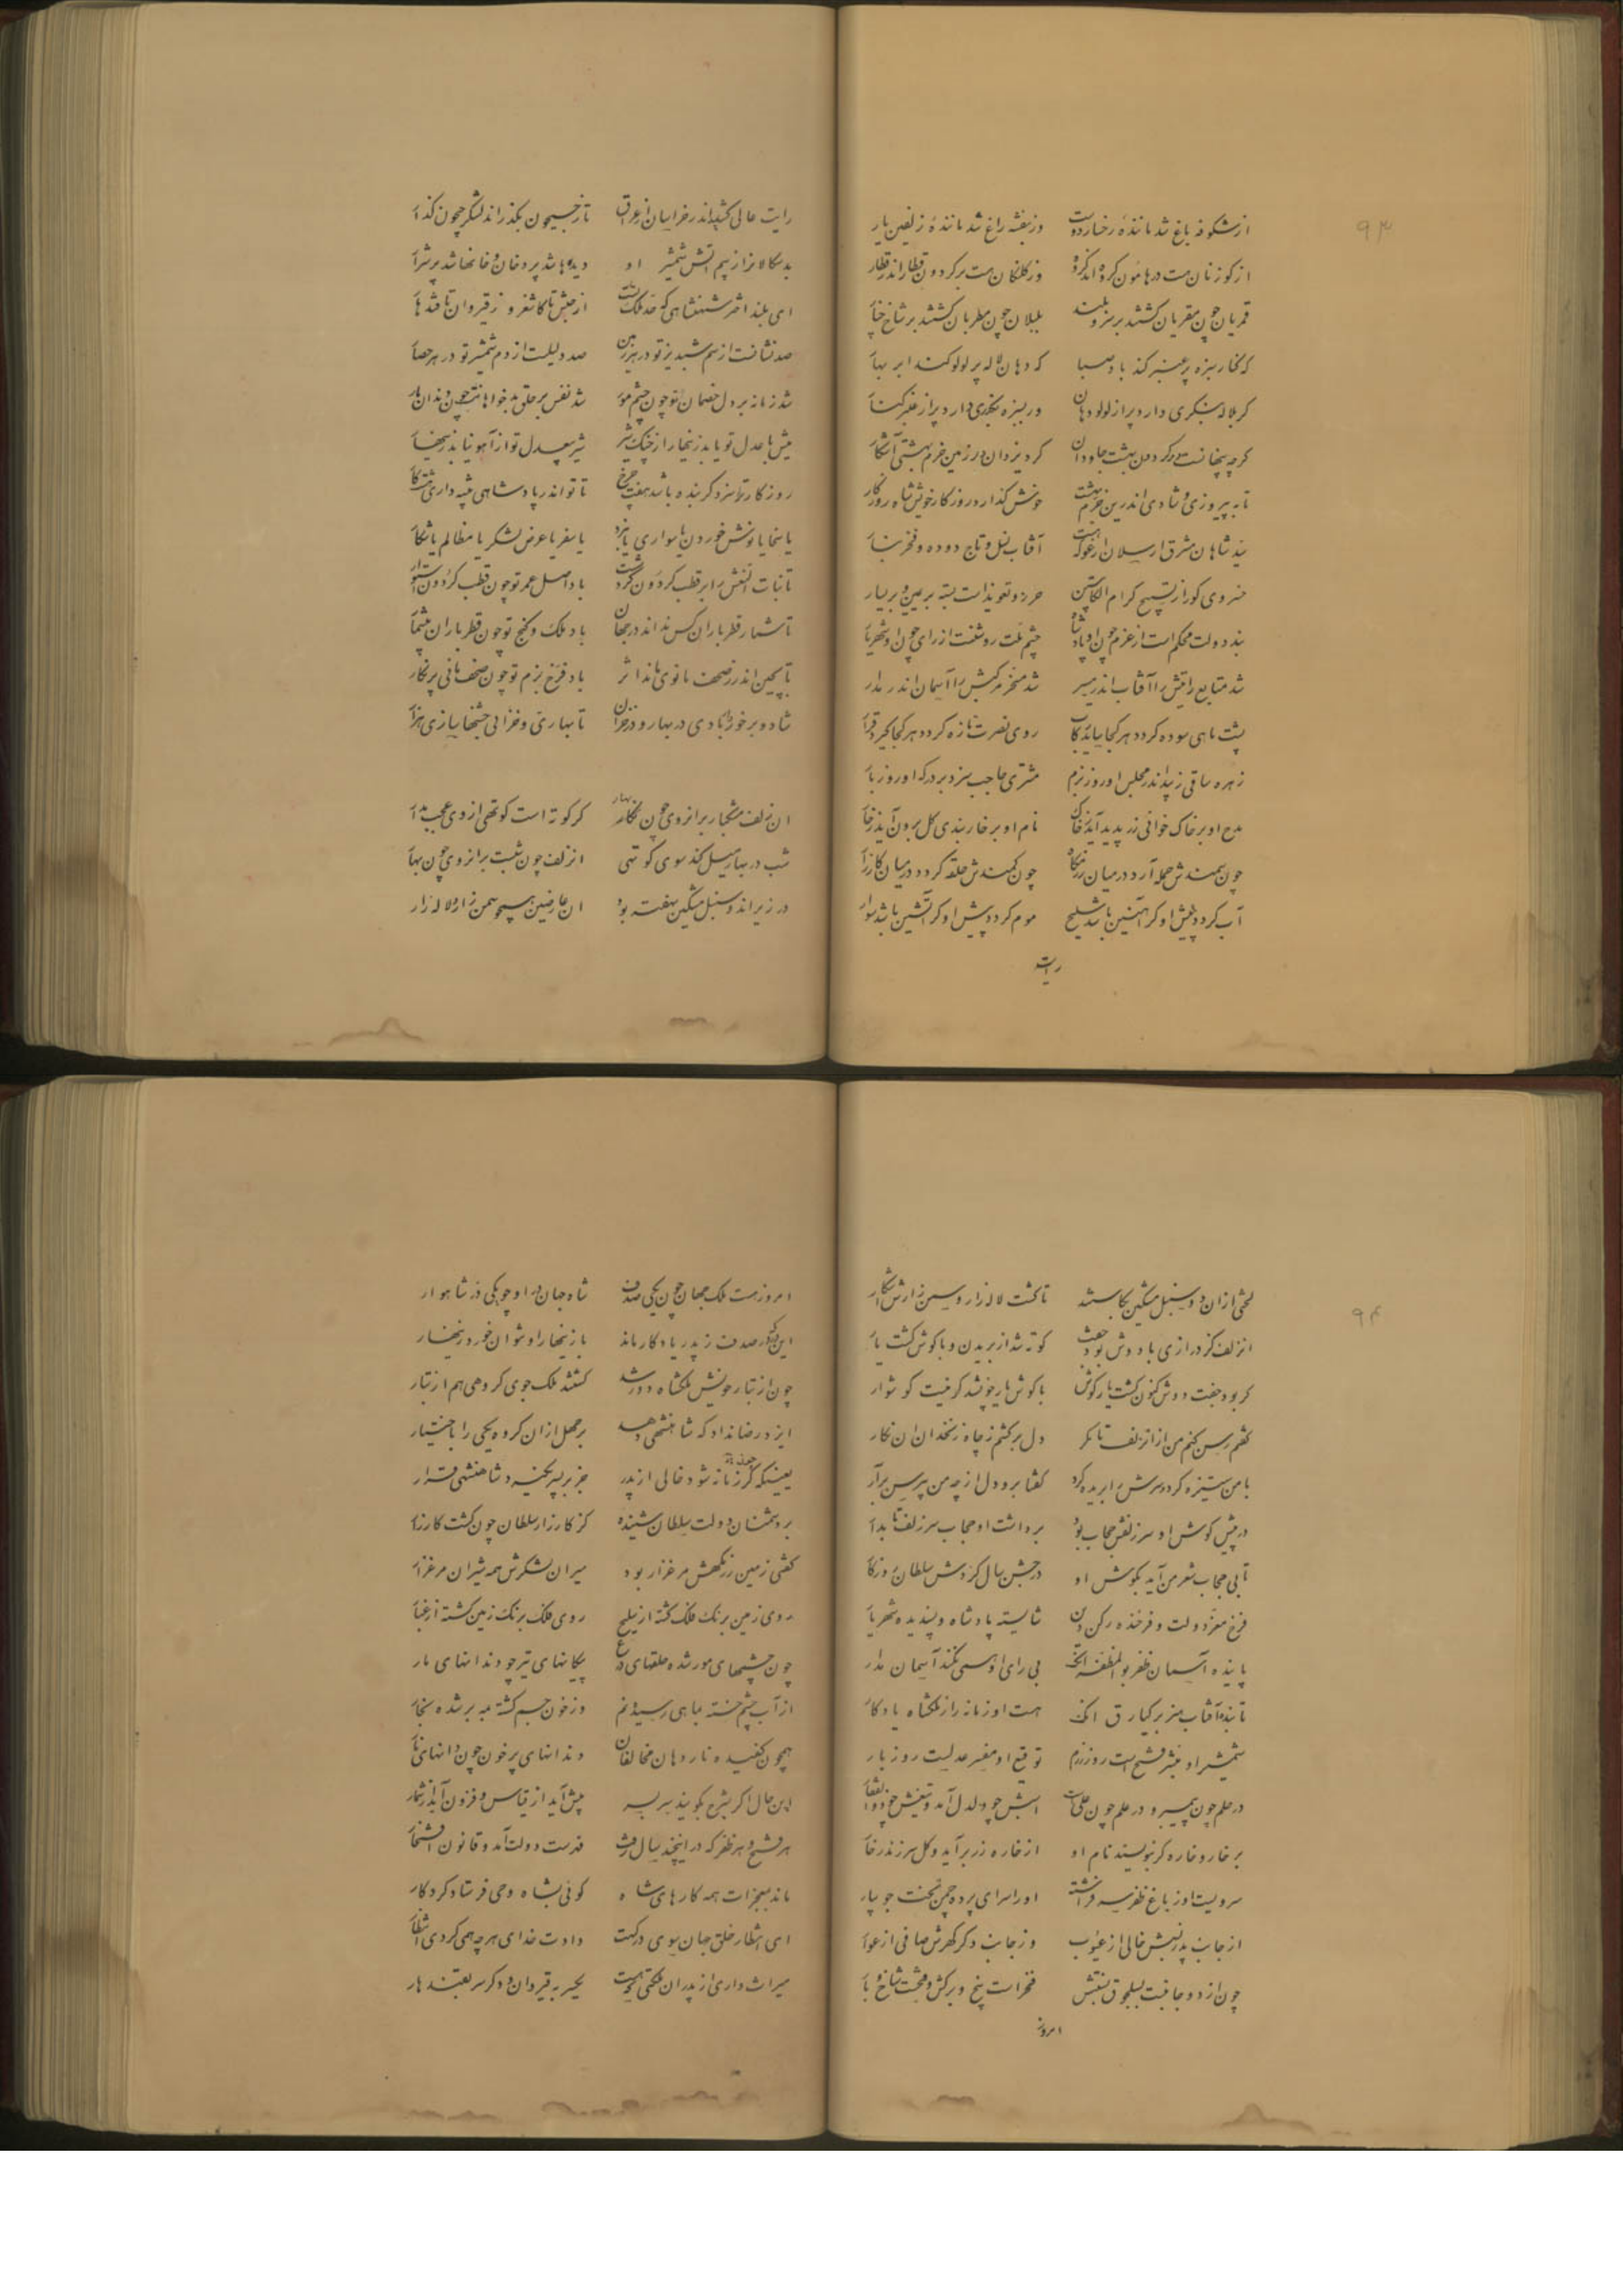 ۹۳
از شکوفه باغ شد مانندهٔ رخسار دوست وز بنفشه راغ شد مانندهٔ زلفین یار
از گوزنان هست در هامون گروه اندر گروه وز کلنگان هست بر گردون قطار اندر قطار
قمریان چون مقریان گشتند بر سرو بلند بلبلان چون مطربان گشتند بر شاخ چنار
گه کنار سبزه پر عنبر کند باد صبا گه دهان لاله پر لولو کند ابر بهار
گر بلاله بنگری دارد پر از لولو دهان ور بسبزه بگذری دارد پر از عنبر کنار
گرچه پنهانست در گردون بهشت جاودان کرد یزدان در زمین خرم بهشتی آشکار
تا به پیروزی و شادی اندرین خرم بهشت خوش گذارد روزگار خویش شاه روزگار
سید شاهان مشرق ارسلان ارغو که هست آفتاب نسل و تاج دوده و فخر تبار
خسروی کورا ز تسبیح کرام الکاتبین حرز و تعویذ است بسته بر یمین و بر یسار
بند دولت محکم است از عزم چون او پادشاه چشم ملت روشنست از رای چون او شهریار
شد متابع رایتش را آفتاب اندر مسیر شد مسخر مرکبش را آسمان اندر مدار
پشت ماهی سوده گردد هر کجا ساید رکاب روی نصرت تازه گردد هر کجا گیرد قرار
زهره ساقی زیبد اندر مجلس او روز بزم مشتری حاجب سزد بر درگه او روز بار
مدح او بر خاک خوانی زر پدید آید ز خاک نام او بر خار بندی گل برون آید ز خار
چون سمندش حمله آرد در میان رزمگاه چون کمندش حلقه گردد در میان کارزار
آب گردد پیش او گر آهنین باشد سلیح موم گردد پیش او گر آتشین باشد سوار
رایت
رایت عالی کشید اندر خراسان از عراق تا ز جیحون بگذراند لشکر جیحون گذار
بدسگالانرا ز بیم آتش شمشیر او دیدها شد پر دخان و خانها شد پر شرار
ای بلند اختر شهنشاهی که حد ملک تست از حبش تا کاشغر وز قیروان تا قندهار
صد نشانست از سم شبدیز تو در هر زمین صد دلیلست از دم شمشیر تو در هر حصار
شد زمانه بر دل خصمان تو چون چشم مور شد نفس بر حلق بدخواهانت چون دندان مار
میش با عدل تو یابد زینهار از چنگ شیر شیر بی عدل تو از آهو نیابد زینهار
روزگارت را سزد گر بنده باشد هفت چرخ تا تو اندر پادشاهی پیشه داری هشت کار
یا سخا یا نوش خوردن یا سواری یا نبرد یا سفر یا عرض لشکر یا مظالم یا شکار
تا بنات النعش را بر قطب گردون گردشست باد اصل عمر تو چون قطب گردون استوار
تا شمار قطر باران کس نداند در جهان باد ملک و گنج تو چون قطر باران بیشمار
تا بچین اندر ز صحف مانوی ماند اثر باد فرخ بزم تو چون صحف مانی پر نگار
شاد و برخوردار بادی در بهار و در خزان تا بهاری و خزانی جشنها سازی هزار
ان زلف مشکبار بر ان روی چون نگار گر کوته است کوتهی از وی عجب مدار
شب در بهار میل کند سوی کوتهی ان زلف چون شبست بر ان روی چون بهار
در زیر اندو سنبل مشکین نهفته بود ان عارضین همچو سمن زار و لاله زار
۹۴
لختی از ان دو سنبل مشکین بکاستند تا گشت لاله زار و سمن زارش آشکار
ان زلف کز درازی با دوش بود جفت کوته شد از بریدن و با گوش گشت یار
گر بود جفت دوش کنون گشت یار گوش با گوش یار خوشد گر نیست گوشوار
گفتم رسن کنم من از ان زلف تا مگر دل بر کشم ز چاه زنخدان ان نگار
با من ستیزه کرد و سرش را بریده کرد گفتا برو دل از چه من بی رسن برآر
در پیش گوش او سر زلفش حجاب بود برداشت او حجاب سر زلف تابدار
تا بی حجاب شعر من آید بگوش او در جشن سال گردش سلطان روزگار
فرخ معز دولت و فرخنده رکن دین شایسته پادشاه و پسندیده شهریار
پاینده آسمان ظفر بوالمظفر آنک بی رای او همی نکند آسمان مدار
تابنده آفتاب هنر برکیارق انک هست او زمانه را ز ملکشاه یادگار
شمشیر او مبشر فتحست روز رزم توقیع او مفسر عدلست روز بار
در حلم چون پیمبر و در علم چون علی است اسبش چو دلدل آمد و تیغش چو ذوالفقار
بر خار و خاره گر بنویسند نام او از خاره زر برآید و گل سر زند ز خار
سرویست او ز باغ ظفر سر فراشته او را سرای پرده چمن تخت جویبار
از جانب پدر نسبش خالی از عیوب وز جانب دگر گهرش صافی از عوار
چون از دو جانبست بسلجوق نسبتش فخر است بیخ و برگش و محبت شاخ و بار
امروز
امروز هست ملک جهان چون یکی صدف شاه جهان در او چو یکی در شاهوار
این در و صدف ز پدر یادگار ماند با زینهار او نتوان خورد زینهار
چون از تبار خویش ملکشاه دور شد گشتند ملک جوی گروهی هم از تبار
ایزد رضا نداد که شاهنشهی دهد بر جهل از ان گروه یکی را باختیار
بیند که گر زمانه شود خالی از پدر جز بر پسر نگیرد شاهنشهی قرار
بر دشمنان دولت سلطان شنیده کز کارزار سلطان چون گشت کار زار
گفتی زمین رزمگهش مرغزار بود میران لشکرش همه شیران مرغزار
روی زمین برنگ فلک گشته از سلیح روی فلک برنگ زمین گشته از غبار
چون چشمهای مور شده حلقهای درع پیکانهای تیر چو دندانهای مار
از آب چشم خسته بماهی رسیده نم وز خون جسم کشته بمه بر شده بخار
همچون کفیده نار دهان مخالفان دندانهای پر خون چون دانهای نار
این حال اگر بشرح بگویند سر بسر بیش آید از قیاس و فزون آید از شمار
هر فتح و هر ظفر که در اینچند سال رفت فهرست دولت آمد و قانون افتخار
ماند بمعجزات همه کارهای شاه گوئی بشاه وحی فرستاد کردگار
ای انتظار خلق جهان سوی درگهت دادت خدای هر چه همی کردی انتظار
میراث داری از پدران ملکتی که هست یکسر به قیروان و دگر سر بقندهار